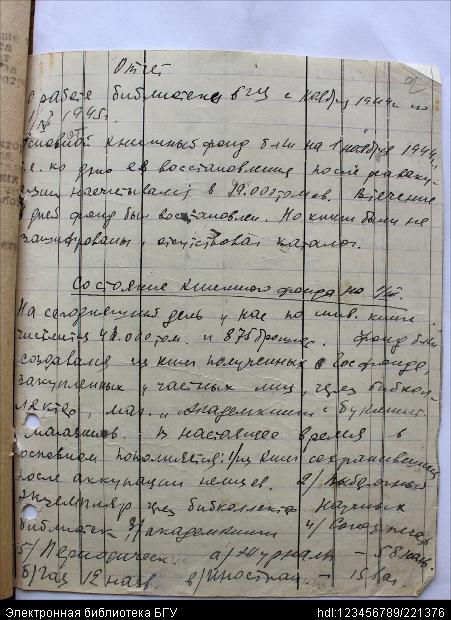 Отчет
О работе библиотеки БГУ с ноября 1944 г. по
1945 г.
Основной книжный фонд б-ки на 1 ноября 1944 г.,
т.е. ко дню ее восстановления после реэваку-
ации насчитывался в 19.000 томов. В течение
дней фонд был восстановлен. Но книги были не
зашифрованы, отсутствовал каталог.
Состояние книжного фонда на
На сегодняшний день у нас по инв. книге
числится 48.000 том. и 875 брошюр. Фонд б-ки
создавался из книг полученных с Госфонда,
закупленных у частных лиц, через бибкол-
лектор, маг. Академкниги и букинист.
магазинов. В настоящее время в
основном пополняется: 1/ из книг сохранившихся
после аккупации немцев. 2/
экземпляр через бибколлектор научных
библиотек 3/ академкниги 4/ Союзпечать
5/ Периодические а/ Журналы – 58 назв.
б/ Газ 12 назв. в/ Иностран. – 15 наз
Электронная библиотека БГУ
hdl:123456789/221376